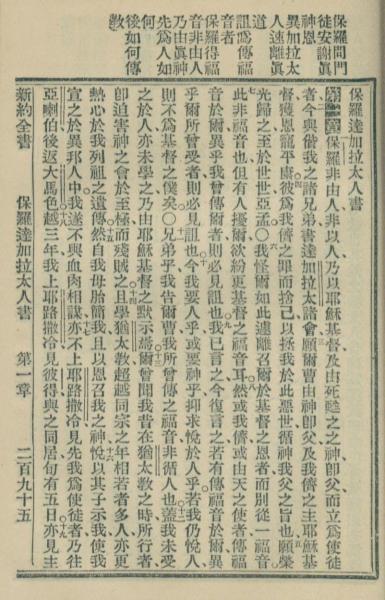 保羅問門
徒安謝眞
神恩
異加拉太
人速離眞
道
詛爲僞福
音者
保羅得福
音非由人
乃由眞神
先爲人如
何
後如何傳
敎
保羅達加拉太人書
第一章
保羅非由人非以人乃以耶穌基督及由死甦之之神卽父而立爲使徒
者今與偕我之諸兄弟書達加拉太諸會願爾曹由神卽父及我儕之主耶穌基
督獲恩寵平康彼爲我儕之罪而捨己以拯我於此惡世循神我父之旨也願榮
光歸之至於世世亞孟〇我怪爾如此速離召爾於基督之恩者而別從一福音
此非福音也但有人擾爾欲紛更基督之福音耳然或我儕或由天之使者傳福
音於爾異乎我曾傳爾者則必見詛也我已言之今復言之若有傳福音於爾異
乎爾所曾受者則必見詛也今我要人乎或要神乎抑求悅於人乎若我仍悅人
則不爲基督之僕矣〇兄弟乎我告爾曹我所曾傳之福音非循人也蓋我未受
之於人亦未學之乃由耶穌基督之默示爾曾聞我昔在猶太敎之時所行者
卽迫害神之會於至極而殘賊之且學猶太敎超越同宗之年相若者多人亦更
熱心於我列祖之遺傳然自我母胎簡我且以恩召我之神悅以其子示我使我
宣之於異邦人中我遂不與血肉相謀亦不上耶路撒冷見先我爲使徒者乃往
亞喇伯後返大馬色越三年我上耶路撒冷見彼得與之同居旬有五日亦見主
新約全書
保羅達加拉太人書
第一章
二百九十五